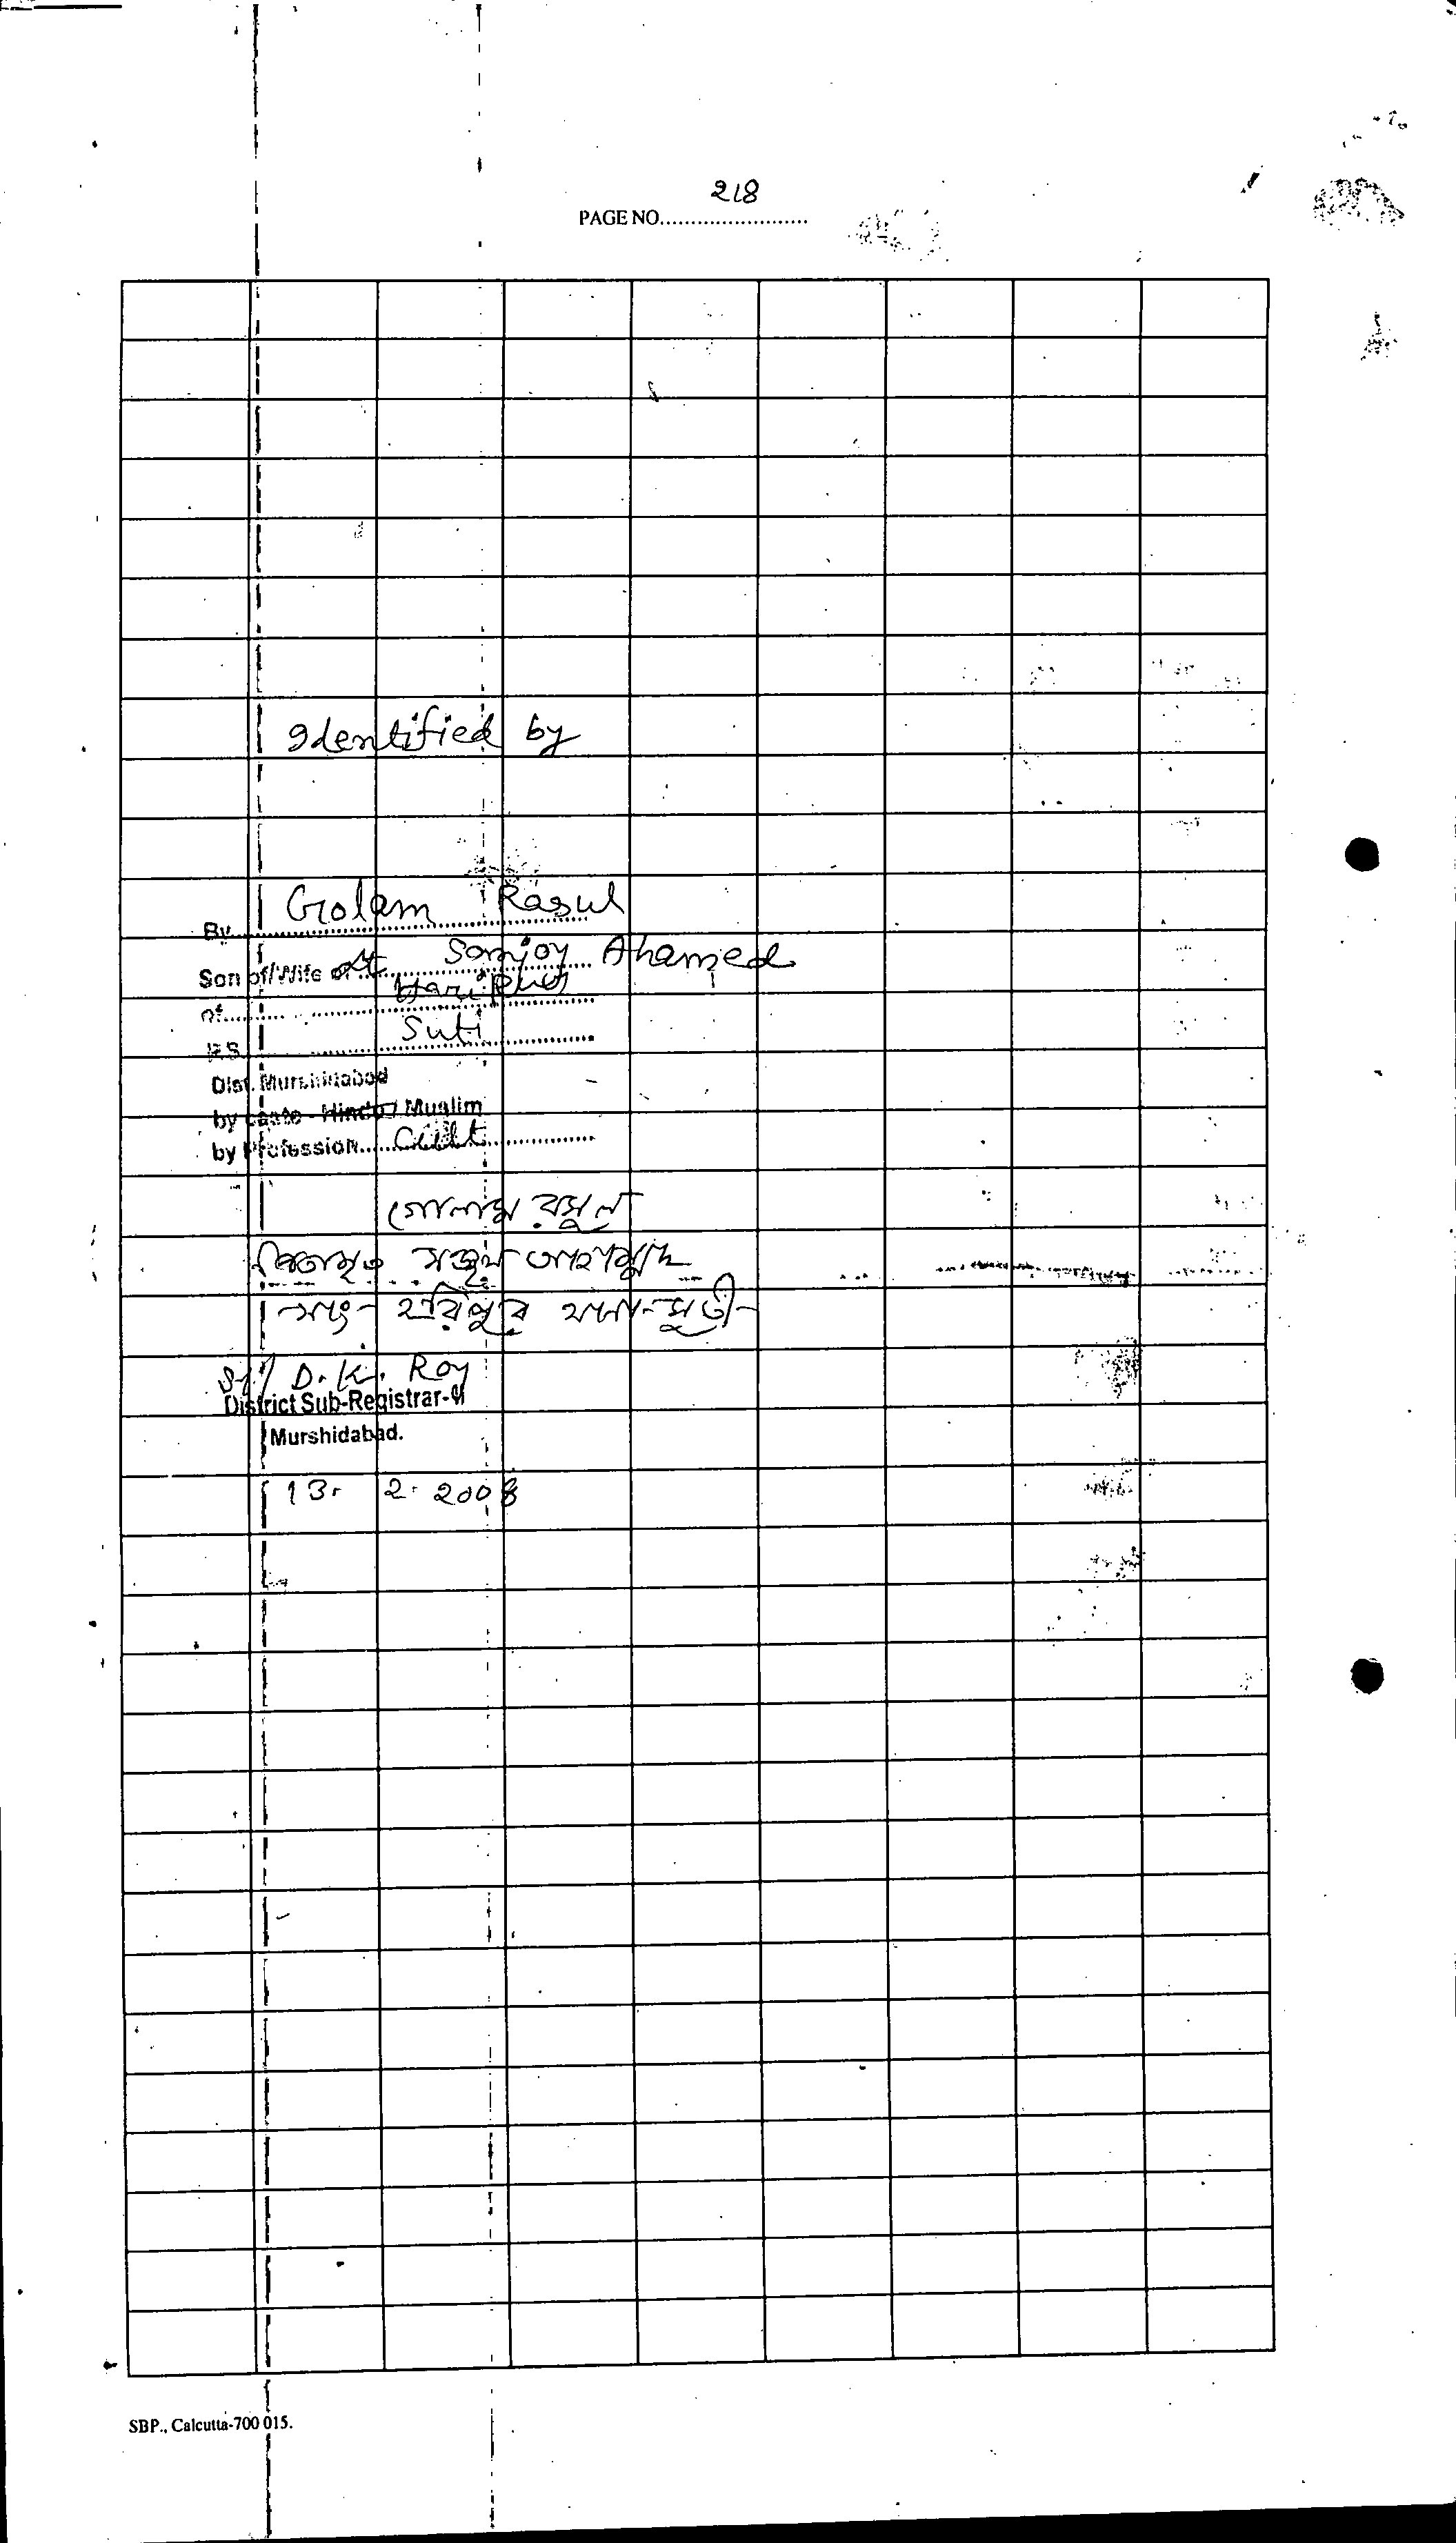 218
PAGE NO........................
Identified by
By Golam Rasul
Son of/Wife of Lt Sanjoy Ahamed
of Haripur
P.S. Suti
Dist. Murshidabad
by caste - Hindu / Muslim
by Profession Cult
গোলাম রসুল
পিতা মৃত আহাম্মদ
সাং- হরিপুর থানা- সুতী
Sd/ D. K. Roy
District Sub-Registrar-
Murshidabad.
13. 2. 2008
SBP., Calcutta-700 015.